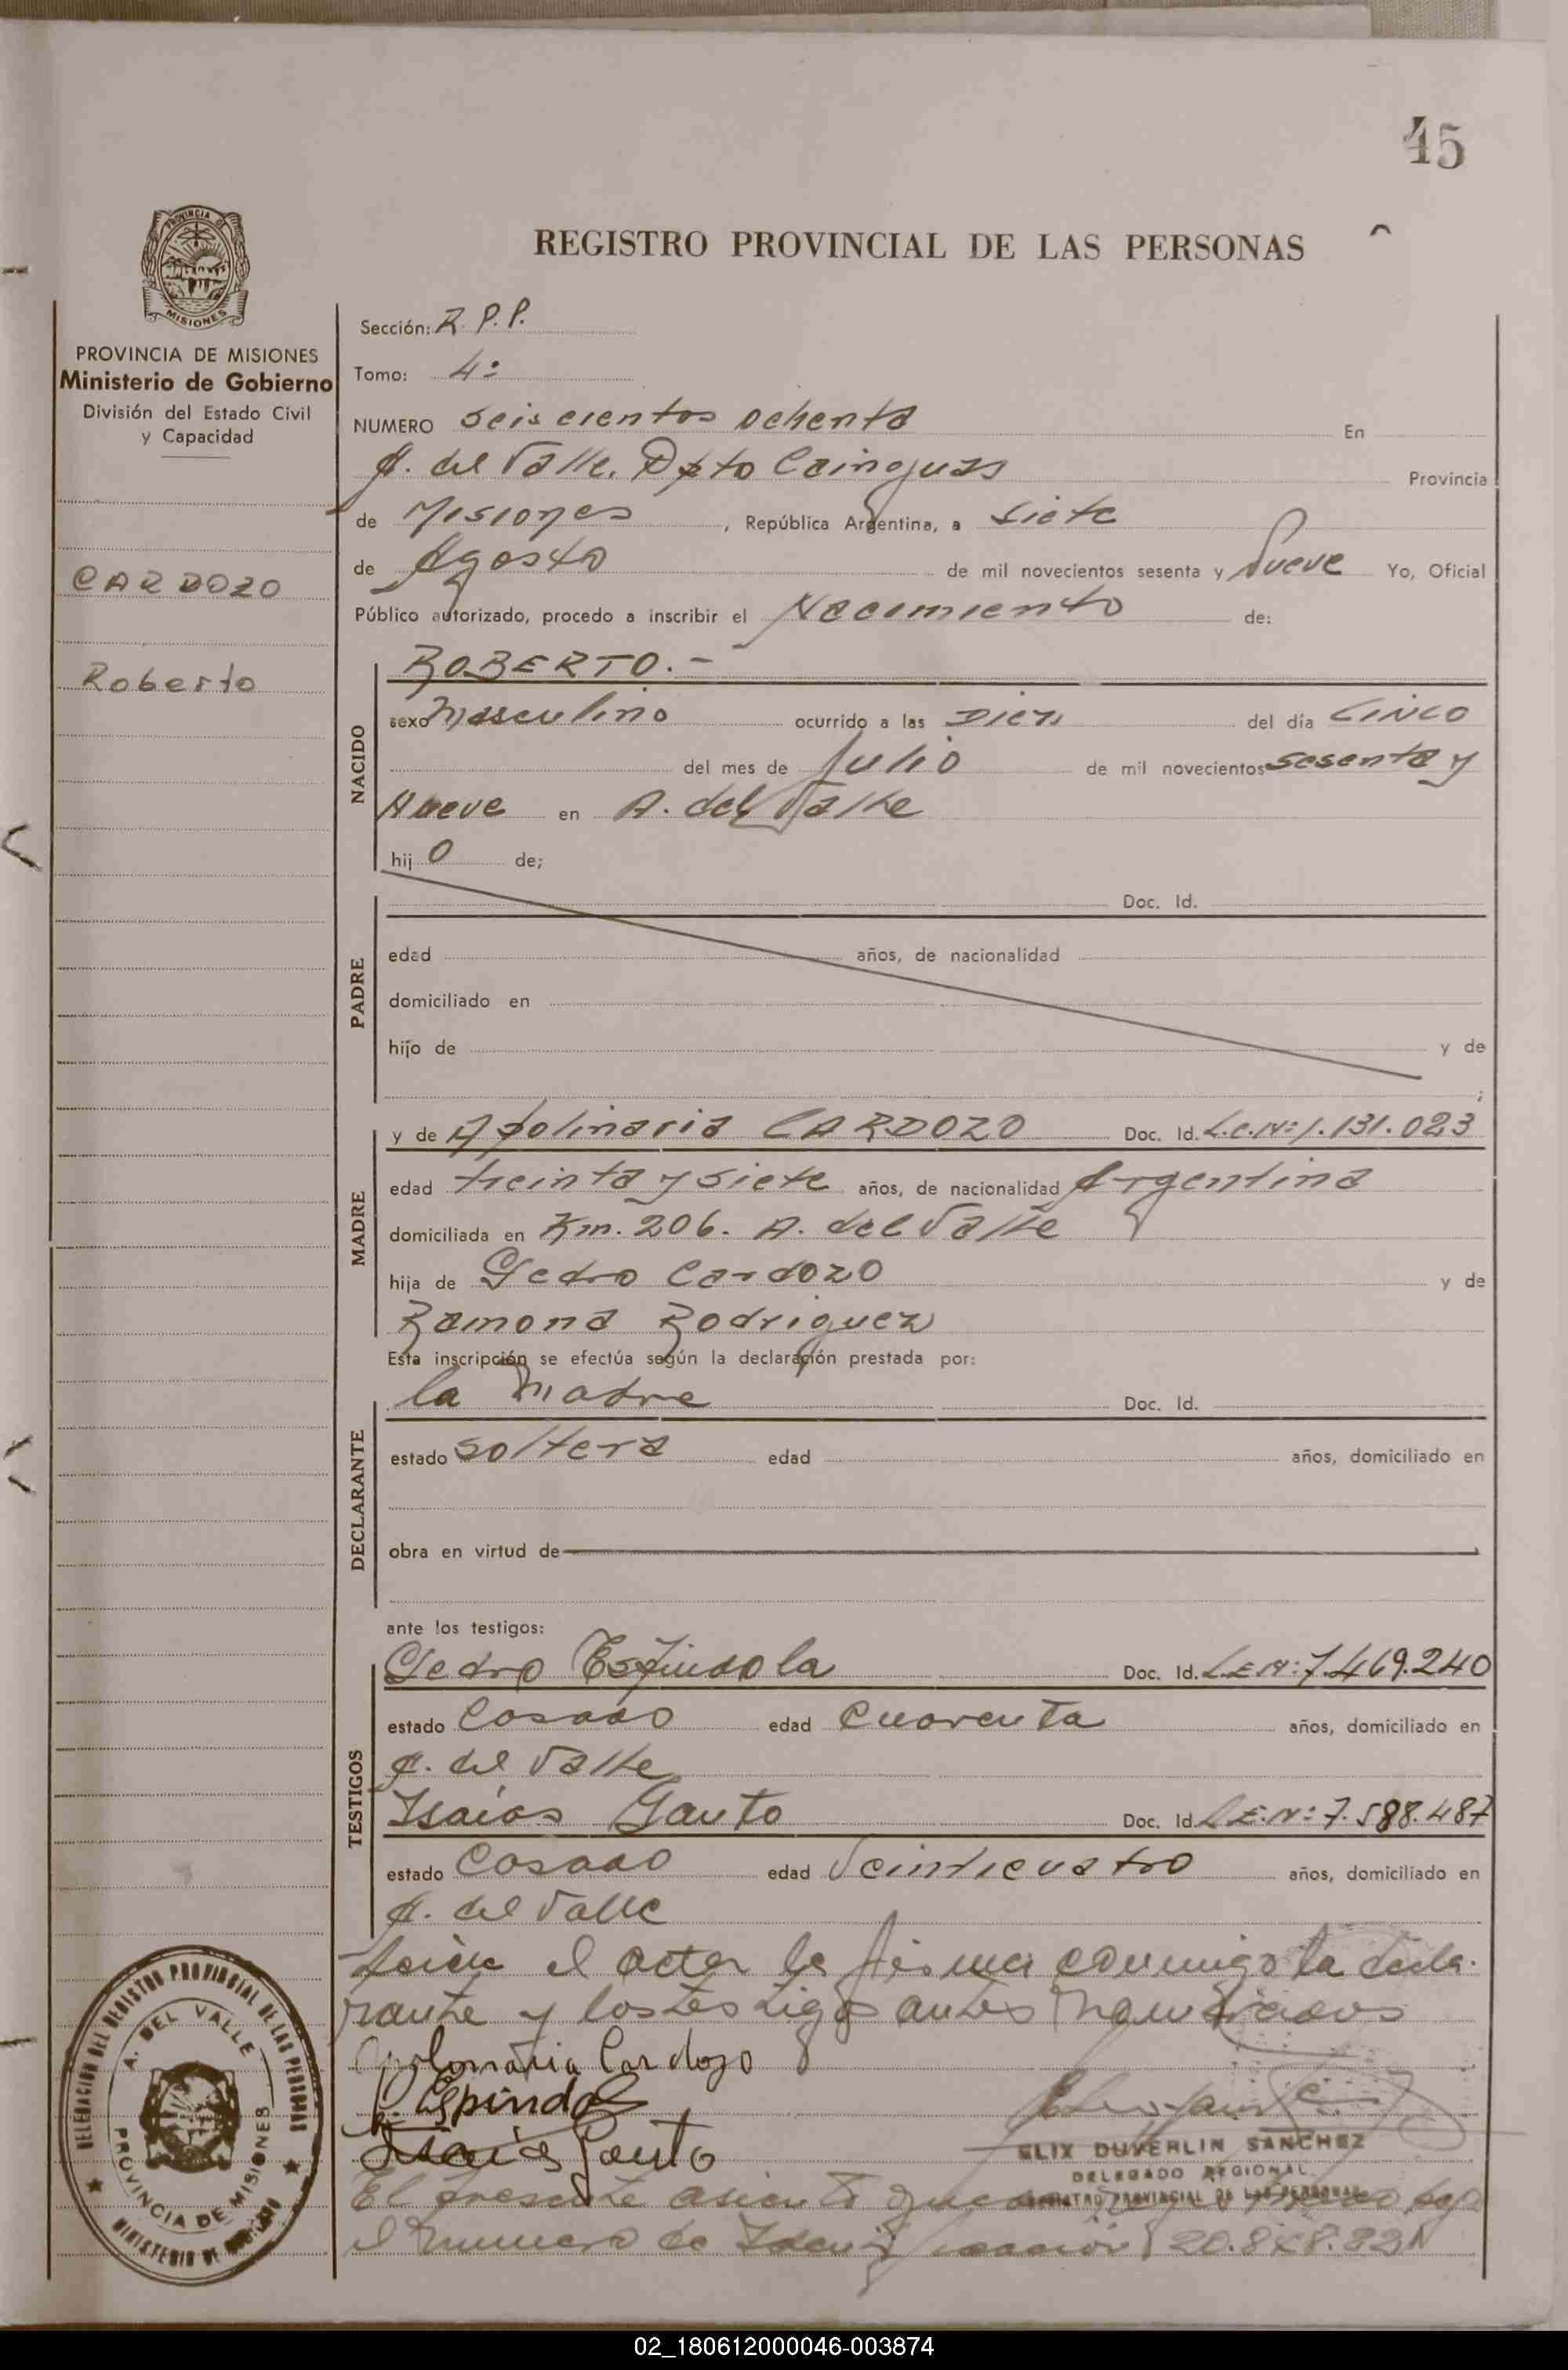 45
REGISTRO PROVINCIAL DE LAS PERSONAS
PROVINCIA DE MISIONES
PROVINCIA DE MISIONES
Ministerio de Gobierno
División del Estado Civil
y Capacidad
CARDOZO
Roberto
Sección: R. P. P.
Tomo: 4º
NUMERO Seiscientos ochenta En
A. del Valle. Dpto Cainguas Provincia
de Misiones, República Argentina, a siete
de Agosto de mil novecientos sesenta y Nueve Yo, Oficial
Público autorizado, procedo a inscribir el Nacimiento de:
NACIDO
ROBERTO.-
sexo Masculino ocurrido a las Diez del día CINCO
del mes de Julio de mil novecientos sesenta y
Nueve en A. del Valle
hij o de;
PADRE
Doc. Id.
edad años, de nacionalidad
domiciliado en
hijo de y de
;
MADRE
y de Apolinaria CARDOZO Doc. Id. L.C.Nº 1.131.023
edad treinta y siete años, de nacionalidad Argentina
domiciliada en Km. 206. A. del Valle
hija de Pedro Cardozo y de
Ramona Rodriguez
Esta inscripción se efectúa según la declaración prestada por:
DECLARANTE
la Madre Doc. Id.
estado soltera edad años, domiciliado en
obra en virtud de
ante los testigos:
TESTIGOS
Pedro Espindola Doc. Id. L.E.Nº 7.469.240
estado Casado edad Cuarenta años, domiciliado en
A. del Valle
Isaias Gauto Doc. Id. L.E.Nº 7.588.487
estado Casado edad Veinticuatro años, domiciliado en
A. del Valle
el acta la firma conmigo la decla-
rante y los testigos antes
Apolonaria Cardozo
P. Espindola
Isaias Gauto
ELIX DUVERLIN SANCHEZ
DELEGADO REGIONAL
REGISTRO PROVINCIAL DE LAS PERSONAS
El presente asiento bajo
el numero de Identificación
DELEGACION DEL REGISTRO PROVINCIAL DE LAS PERSONAS
A. DEL VALLE
PROVINCIA DE MISIONES
MINISTERIO DE GOBIERNO
02_180612000046-003874